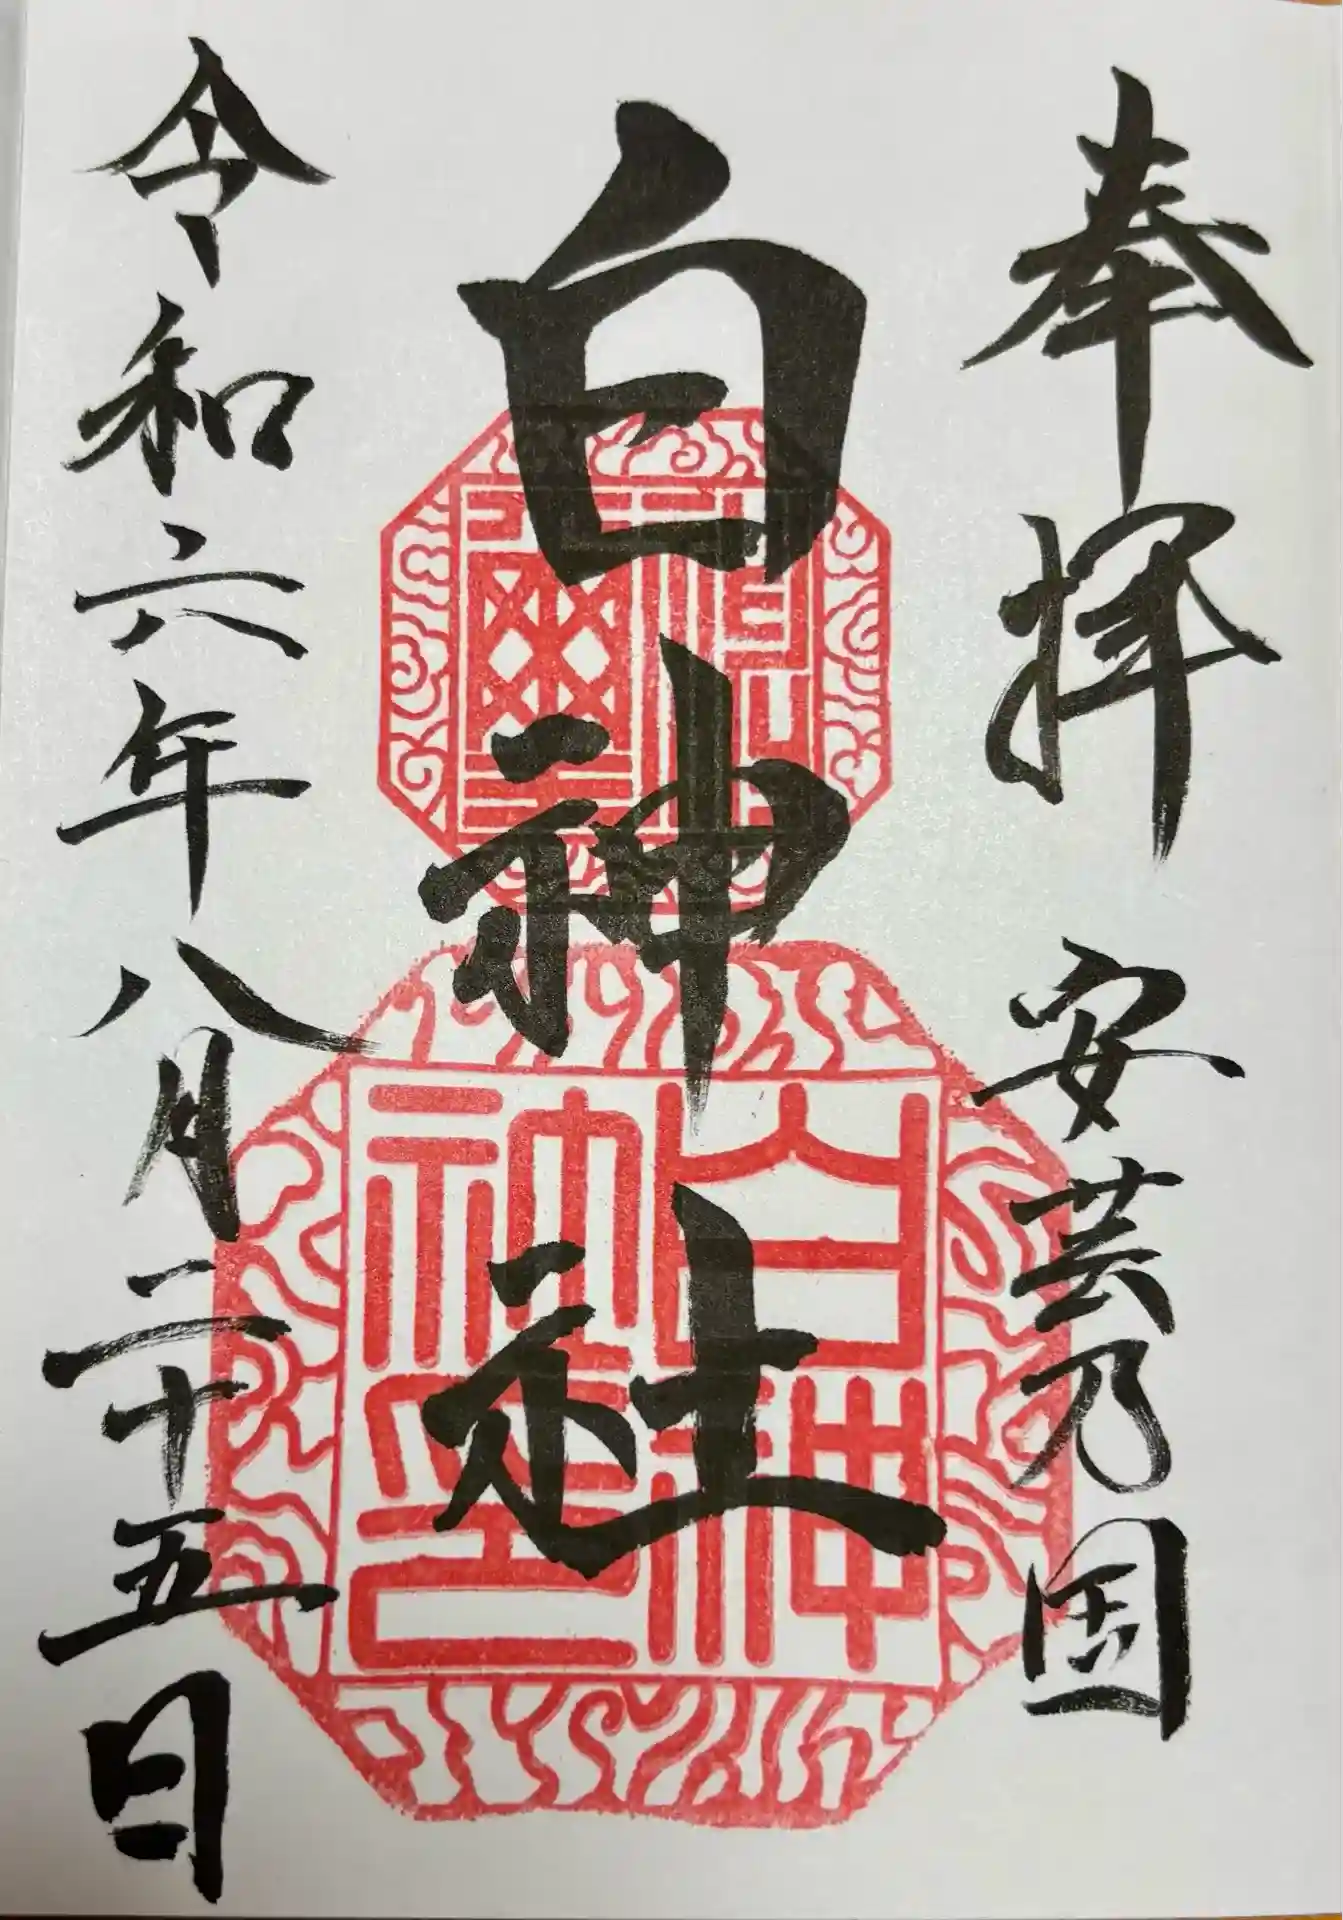 奉拝 安芸乃国
白神社
令和六年八月二十五日
白神神社之印